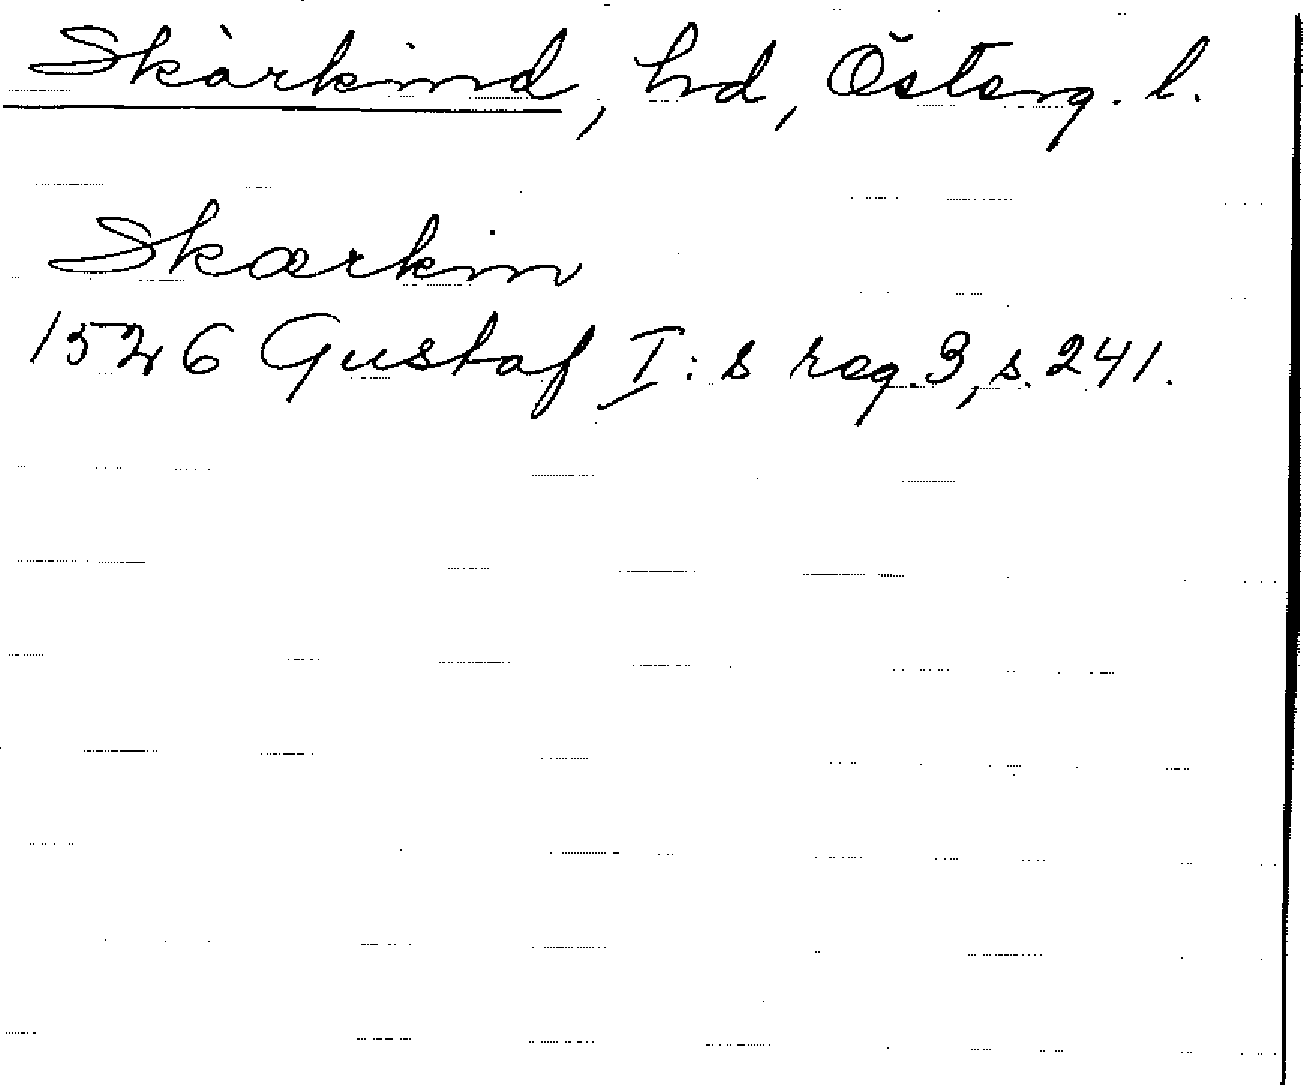 Skärkind, hd, Österg. l.
Skærkin
1526 Gustaf I:s reg. 3, s. 241.